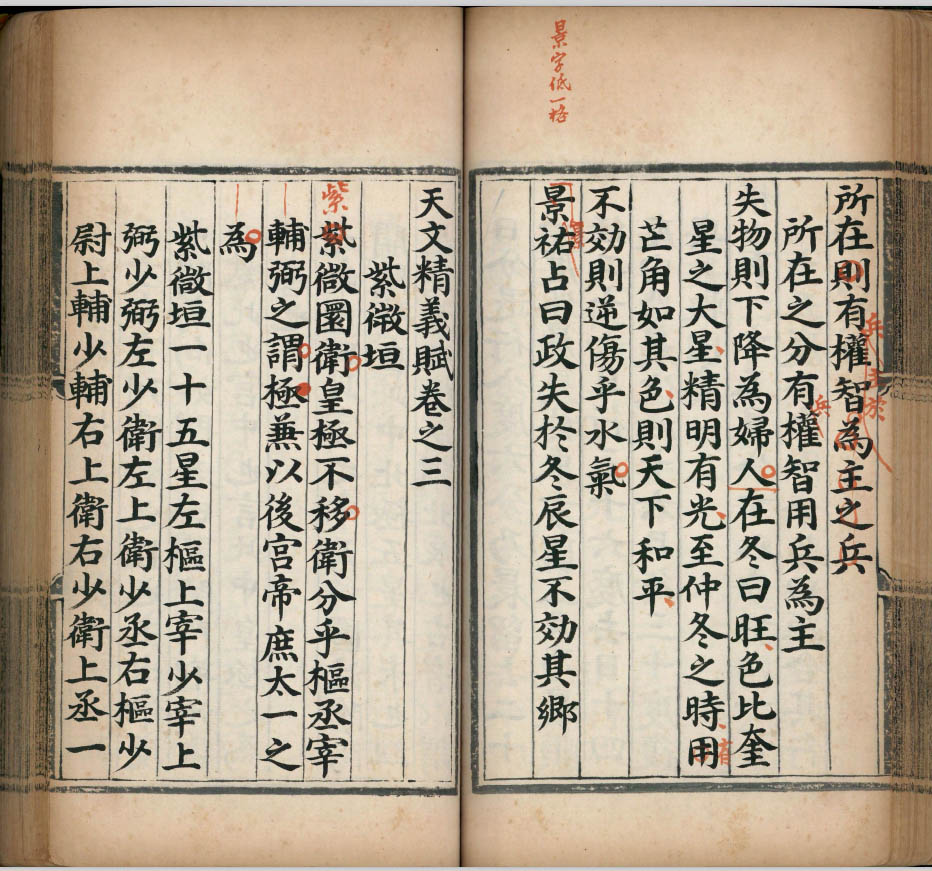 景字低一格
所在則有權智為主之兵
所在之分有權智用兵為主
失物則下降為婦人在冬曰旺色比奎
星之大星精明有光至仲冬之時用
芒角如其色則天下和平
不効則逆傷乎水氣
景祐占曰政失於冬辰星不効其鄉
天文精義賦卷之三
紫微垣
紫
紫微圍衛皇極不移衛分乎樞丞宰
輔弼之謂極無以後宫帝庶太一之
為
紫微垣一十五星左樞上宰少宰上
弼少弼左少衛左上衛少丞右樞少
尉上輔少輔右上衛右少衛上丞一